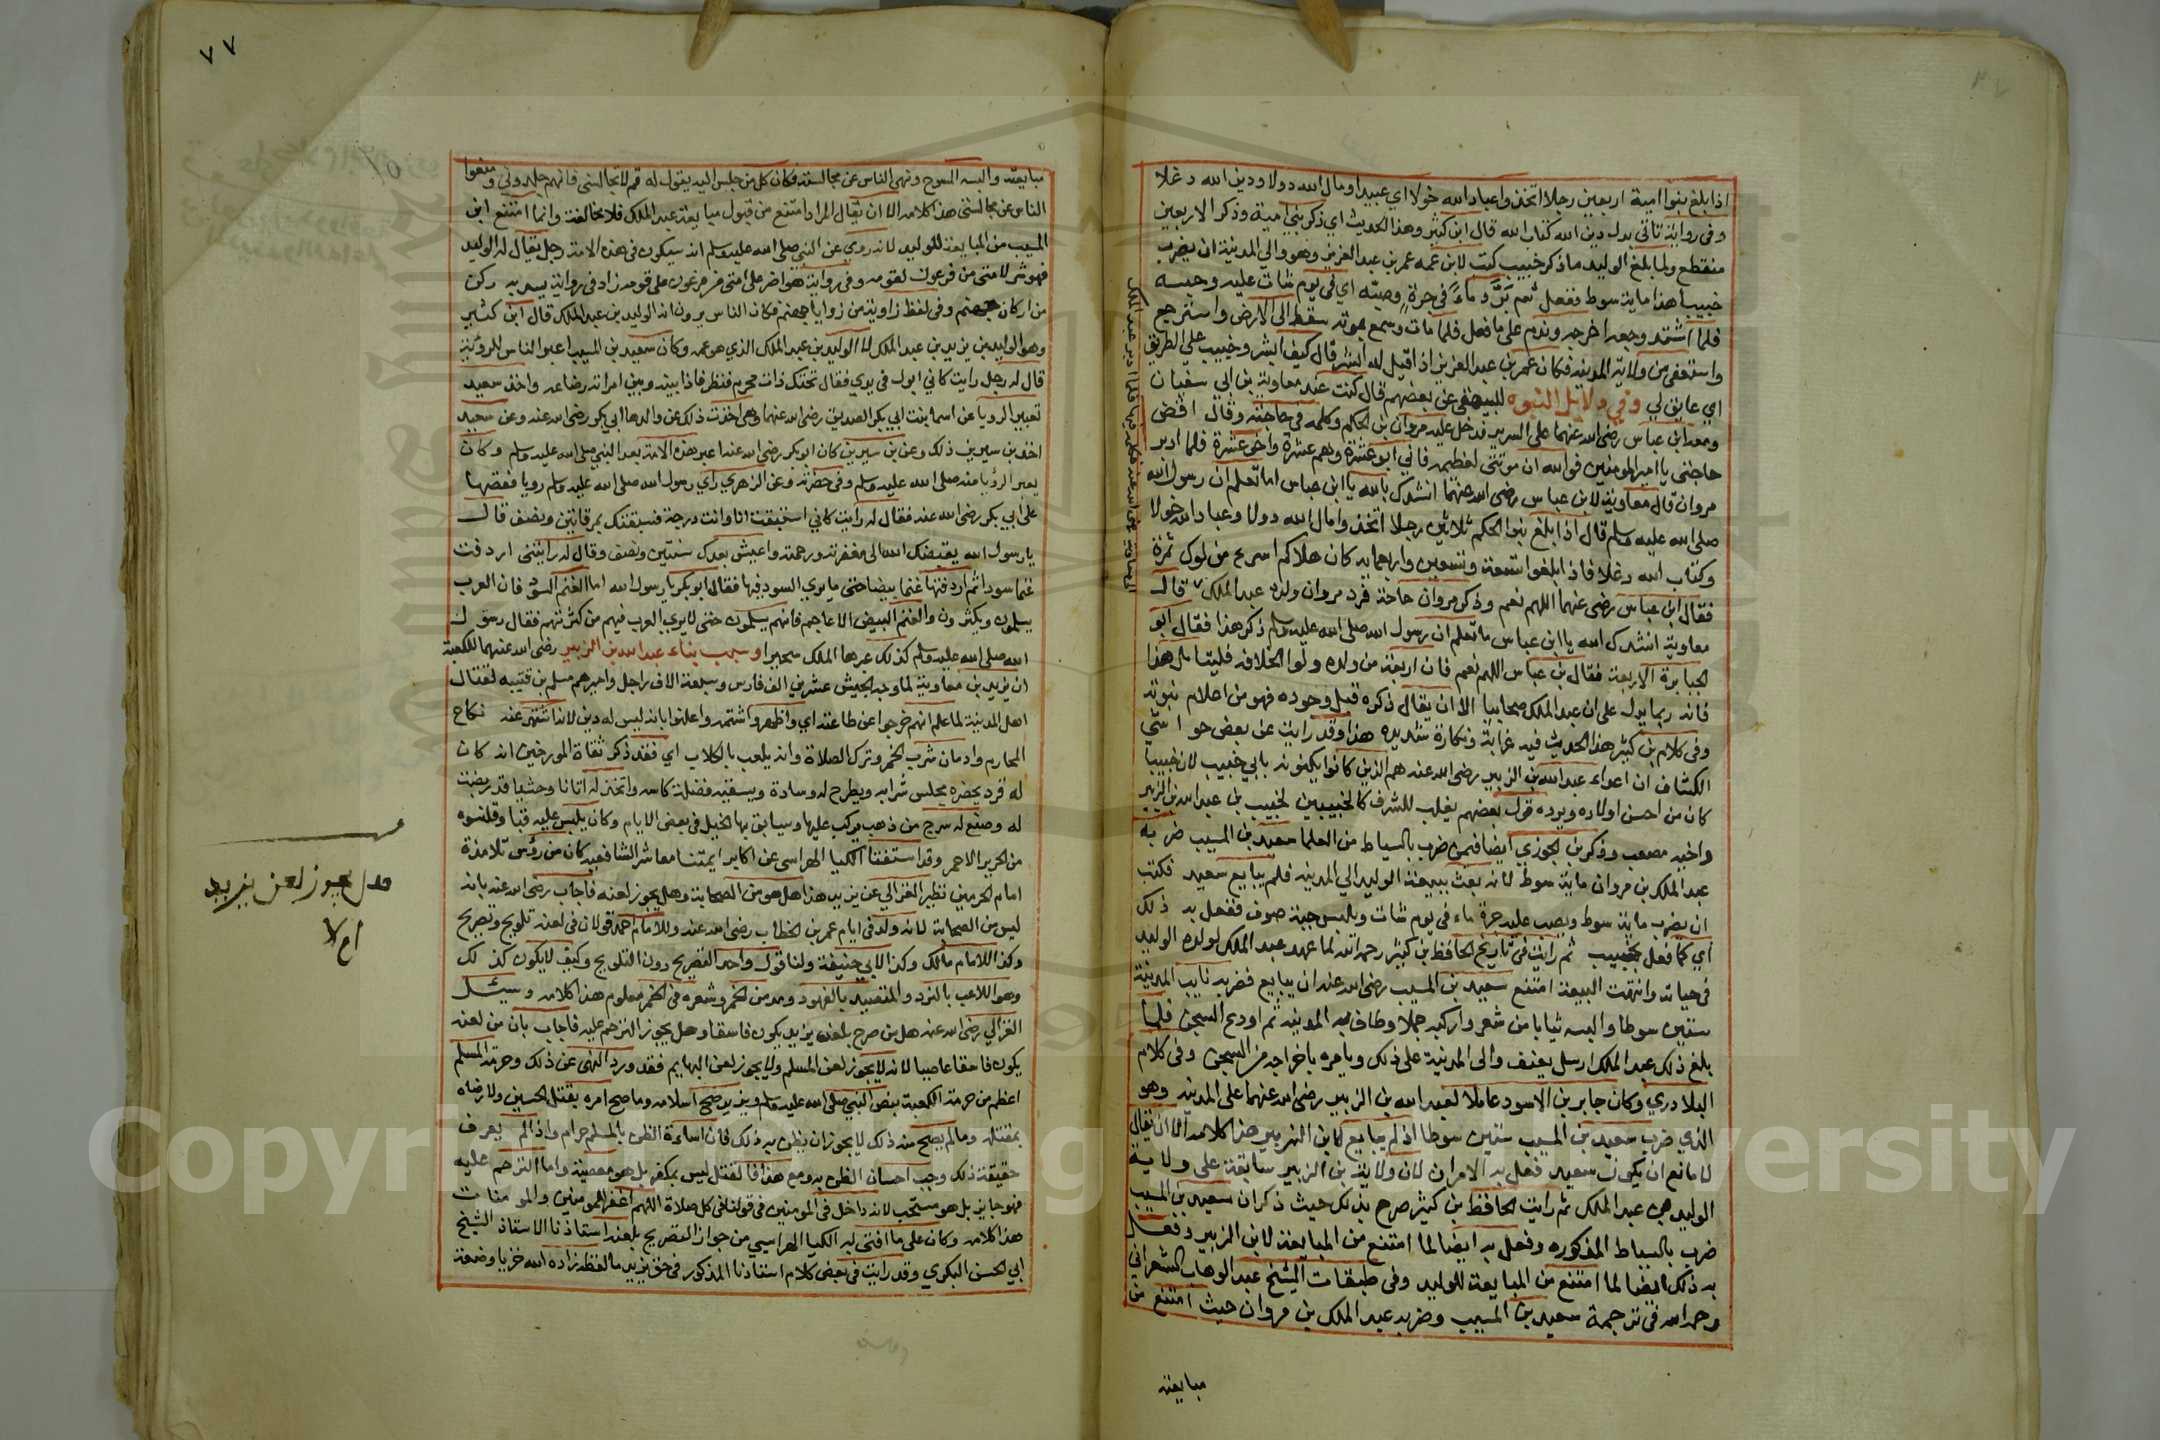 اذا بلغ بنوا امية اربعين رجلا اتخذوا عباد الله خولا اي عبيدا ومال الله دولا ودين الله دغلا
وفي رواية تاتي بدل دين الله كتاب الله قال ابن كثير وهذا الحديث اي ذكر بني امية وذكر الاربعين
منقطع ولما بلغ الوليد ما ذكر خبيب كتب لابن عمه عمر بن عبد العزيز وهو والي المدينة ان يضرب
خبيبا هذا ماية سوط ففعل ثم برد ماء في جرة وصبه اي في يوم شات عليه وحبسه
فلما اشتد وجعه اخرجه وندم على ما فعل فلما مات وسمع بموته سقط الى الارض واسترجع
واستعفى من ولاية المدينة فكان عمر بن عبد العزيز اذا قيل له ابشر قال كيف ابشر وخبيب على الطريق
اي عايق لي وفي دلائل النبوة للبيهقي عن بعضهم قال كنت عند معاوية بن ابي سفيان
ومعه ابن عباس رضي الله عنهما على السرير فدخل عليه مروان بن الحكم وكلمه في حاجته وقال اقض
حاجتي يا امير المومنين فوالله ان موتتي لعظيمة فاني ابو عشرة وعم عشرة واخو عشرة فلما ادبر
مروان قال معاوية لابن عباس رضي الله عنهما انشدك بالله يا ابن عباس اما تعلم ان رسول الله
صلى الله عليه وسلم قال اذا بلغ بنوا الحكم ثلاثين رجلا اتخذوا مال الله دولا وعباد الله خولا
وكتاب الله دغلا فاذا بلغوا تسعة وتسعين واربعماية كان هلاكهم اسرع من لوك تمرة
فقال ابن عباس رضي الله عنهما اللهم نعم وذكر مروان حاجة فرد مروان ولده عبد الملك قال
معاوية انشدك الله يا ابن عباس ما تعلم ان رسول الله صلى الله عليه وسلم ذكر هذا فقال ابو
الجبابرة الاربعة فقال بن عباس اللهم نعم فان اربعة من ولده ولوا الخلافة فليتامل هذا
فانه ربما يدل على ان عبد الملك صحابيا الا ان يقال ذكره قبل وجوده فهو من اعلام نبوته
وفي كلام بن كثير هذا الحديث فيه غرابة ونكارة شديده هذا وقد رايت عن بعض حواشي
الكشاف ان اعداء عبد الله بن الزبير رضي الله عنه هم الذين كانوا يكنونه بابي خبيب لان خبيبا
كان من احسن اولاده ويرده قول بعضهم يغلب للشرف كالخبيبين لخبيب بن عبد الله بن الزبير
واخيه مصعب وذكر بن الجوزي ايضا فيمن ضرب بالسياط من العلما سعيد بن المسيب ضربه
عبد الملك بن مروان ماية سوط لانه بعث ببيعة الوليد الى المدينة فلم يبايع سعيد فكتب
ان يضرب ماية سوط ويصب عليه جرة ماء في يوم شات ويلبس جبة صوف ففعل به ذلك
اي كما فعل بخبيب ثم رايت في تاريخ الحافظ بن كثير رحمه الله لما عهد عبد الملك لولده الوليد
في حياته وانتهت البيعة امتنع سعيد بن المسيب رضي الله عنه ان يبايع فضربه نايب المدينة
ستين سوطا والبسه ثيابا من شعر واركبه جملا وطاف به المدينة ثم اودع السجن فلما
بلغ ذلك عبد الملك ارسل يعنف والي المدينة على ذلك ويامره باخراجه من السجن وفي كلام
البلادري وكان جابر بن الاسود عاملا لعبد الله بن الزبير رضي الله عنهما على المدينة وهو
الذي ضرب سعيد بن المسيب ستين سوطا اذ لم يبايع لابن الزبير هذا كلامه الا ان يقال
لا مانع ان يكون سعيد فعل به الامران لان ولاية بن الزبير سابقة على ولاية
الوليد بن عبد الملك ثم رايت الحافظ بن كثير صرح بذلك حيث ذكر ان سعيد بن المسيب
ضرب بالسياط المذكوره وفعل به ايضا لما امتنع من المبايعة لابن الزبير وفعل
به ذلك ايضا لما امتنع من المبايعة للوليد وفي طبقات الشيخ عبد الوهاب الشعراني
رحمه الله في ترجمة سعيد بن المسيب وضربه عبد الملك بن مروان حيث امتنع من
مبايعته
٧٧
مبايعته والبسه المسوح ونهى الناس عن مجالسته فكان كل من جلس اليه يقول له قم لا تجالسني فانهم جلدوني ومنعوا
الناس عن مجالستي هذا كلامه الا ان يقال المراد امتنع من قبول مبايعة عبد الملك فلا مخالفة وانما امتنع ابن
المسيب من المبايعة للوليد لانه روي عن النبي صلى الله عليه وسلم انه سيكون في هذه الامة رجل يقال له الوليد
فهو شر لامتي من فرعون لقومه وفي رواية هو اضر على امتي من فرعون على قومه زاد في رواية يسد به ركن
من اركان جهنم وفي لفظ زاوية من زوايا جهنم فكان الناس يرون انه الوليد بن عبد الملك قال ابن كثير
وهو الوليد بن يزيد بن عبد الملك لا الوليد بن عبد الملك الذي هو عمه وكان سعيد بن المسيب اعبر الناس للرؤية
قال له رجل رايت كاني ابول في يدي فقال تحتك ذات محرم فنظر فاذا بينه وبين امراته رضاعه واخذ سعيد
تعبير الرويا عن اسما بنت ابي بكر الصديق رضي الله عنهما وهي اخذت ذلك عن والدها ابي بكر رضي الله عنه وعن سعيد
اخذ بن سيرين ذلك وعن بن سيرين كان ابو بكر رضي الله عنه اعبر هذه الامة بعد النبي صلى الله عليه وسلم وكان
يعبر الرؤيا عنه صلى الله عليه وسلم وفي حضرته وعن الزهري راي رسول الله صلى الله عليه وسلم رويا فقصها
على ابي بكر رضي الله عنه فقال له رايت كاني استبقت انا وانت درجة فسبقتك بمرقاتين ونصف قال
يا رسول الله يقبضك الله الى مغفرته ورحمته واعيش بعدك سنتين ونصف وقال له رايتني اردفت
غنما سودا ثم اردفتها غنما بيضا حتى ما يرى السود فيها فقال ابو بكر يا رسول الله اما الغنم السود فان العرب
يسلمون ويكثرون والغنم البيض الاعاجم فانهم يسلمون حتى لا يرى العرب فيهم من كثرتهم فقال رسول
الله صلى الله عليه وسلم كذلك عبرها الملك سحيرا وسبب بناء عبد الله بن الزبير رضي الله عنهما للكعبة
ان يزيد بن معاوية لما وجه الجيش عشرين الف فارس وسبعة الاف راجل واميرهم مسلم بن قتيبه لقتال
اهل المدينة لما علم انهم خرجوا عن طاعته اي واظهروا شتمه واعلنوا بانه ليس له دين لانه اشتهر عنه نكاح
المحارم وادمان شرب الخمر وترك الصلاة وانه يلعب بالكلاب اي فقد ذكر ثقاة المورخين انه كان
له قرد يحضره مجلس شرابه ويطرح له وسادة ويسقيه فضلة كاسه واتخذ له اتانا وحشيا قد ريضت
له وصنع له سرج من ذهب يركب عليها وسابق بها الخيل في بعض الايام وكان يلبس عليه قبا وقلنسوه
من الحرير الاحمر وقد استفتا الكيا الهراسي عن اكابر ايمتنا معاشر الشافعيه كان من رؤس تلامذة
امام الحرمين نظير الغزالي عن يزيد هذا هل هو من الصحابة وهل يجوز لعنه فاجاب رضي الله عنه بانه
ليس من الصحابة لانه ولد في ايام عمر بن الخطاب رضي الله عنه وللامام احمد قولان في لعنه تلويح وتصريح
وكذا للامام مالك وكذا لابي حنيفة ولنا قول واحد التصريح دون التلويح وكيف لا يكون كذلك
وهو اللاعب بالنرد والمتصيد بالفهود ومدمن الخمر وشعره في الخمر معلوم هذا كلامه وسئل
الغزالي رضي الله عنه هل من صرح بلعن يزيد يكون فاسقا وهل يجوز الترحم عليه فاجاب بان من لعنه
يكون فاسقا عاصيا لانه لا يجوز لعن المسلم ولا يجوز لعن البهايم فقد ورد النهي عن ذلك وحرمة المسلم
اعظم من حرمة الكعبة بنص النبي صلى الله عليه وسلم ويزيد صح اسلامه وما صح امره بقتل الحسين ولا رضاه
بمقتله وما لم يصح منه ذلك لا يجوز ان يظن به ذلك فان اساءة الظن بالمسلم حرام واذا لم يعرف
حقيقة ذلك وجب احسان الظن به ومع هذا فالقتل ليس بكفر بل هو معصية واما الترحم عليه
فهو جايز بل هو مستحب لانه داخل في المومنين في قولنا في كل صلاة اللهم اغفر للمومنين والمومنات
هذا كلامه وكان على ما افتى به الكيا الهراسي من جواز التصريح بلعنه استاذنا الاستاذ الشيخ
ابي الحسن البكري وقد رايت في بعض كلام استاذنا المذكور في حق يزيد ما لفظه زاده الله خزيا وضعة
هل يجوز لعن يزيد
ام لا
Copyright © King Saud University